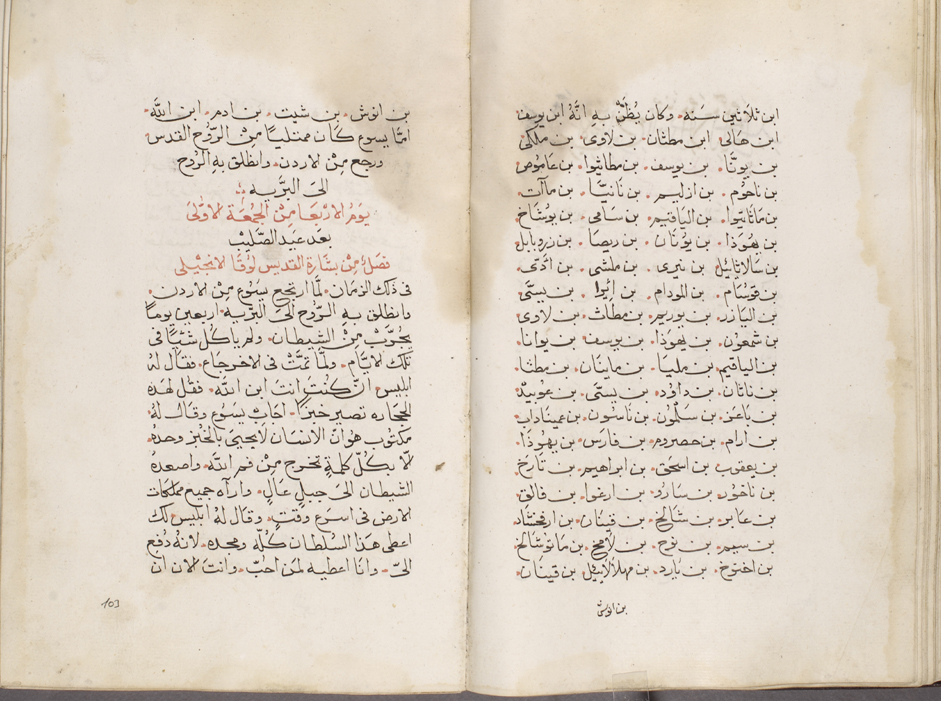 ابن ثلاثين سنه، وكان يُظَنّ به انّهُ ابن يوسف
ابن هالى، ابن مطثان، بن لاوى، بن ملكى
بن يونّا، بن يوسف، بن مطاثيوا، بن عاموص
بن ناحوم، بن ازليم، بن نانيّا، بن ماآت
بن ماثاتيوا، بن الياقيم، بن سامى، بن يوشاخ
بن يهوذا، بن يونّان، بن ريصا، بن زروبابل
بن سالاثاييل، بن نيرى، بن ملشى، بن ادّى
بن قوسام، بن المودام، بن ايُوا، بن يسىّ
بن اليازر، بن يوريم، بن مطاث، بن لاوى
بن شمعون، بن يهوذا، بن يوسف، بن يوانا
بن الياقيم، بن مليا، بن ماينان، بن مطثا
بن ناثان، بن داود، بن يسىّ، بن عوبيد
بن باعز، بن سلمون، بن ناسون، بن عميناداب
بن ارام، بن حصروم، بن فارس، بن يهوذا
بن يعقوب، بن اسحق، بن ابراهيم، بن تارخ
بن ناخور، بن سارو، بن ارغوا، بن فالق
بن عابر، بن شالخ، بن قينان، بن ارفخشاد
بن سيم، بن نوح، بن لامخ، بن ماتوشالخ
بن اخنوخ، بن يارد، بن مهلالاييل، بن قينان
بن انوش
بن انوش، بن شيت، بن ادم، ابن اللّه
امّا يسوع كان ممتلياً من الرّوح القدس
ورجع من الاردن، وانطلق به الرّوح
الى البرّيه
يوم الاربعا من الجمعة الاولى
بعد عيد الصّليب
فصلٌ من بشارة القديس لوقا الانجيلى
فى ذلك الزمان، لمّا ارتجع يسوع من الاردن
وانطلق به الروح الى البريه، اربعين يوماً
يجُرّب من الشيطان، ولم ياكل شيّا فى
تلك الايّام، ولمّا تمّتْ فى الاخر جاع، فقال له
ابليس، ان كُنت انت ابن اللّه، فقل لهذه
الحجاره تصير خبزاً، اجاب يسوع وقال لهُ
مكتوب هو انّ الانسان لا يحيى بالخُبز وحده
لا بكُلّ كلمةٍ تخرج من فم اللّه، واصعده
الشيطان الى جبلٍ عالٍ، واراه جميع مملكات
الارض فى اسرع وقتٍ، وقال لهُ ابليس لك
اعطى هذا السُلطان كلّه ومجده، لانهُ دُفع
الىّ، وانا اعطيه لمن احبّ، وانت الان ان
103